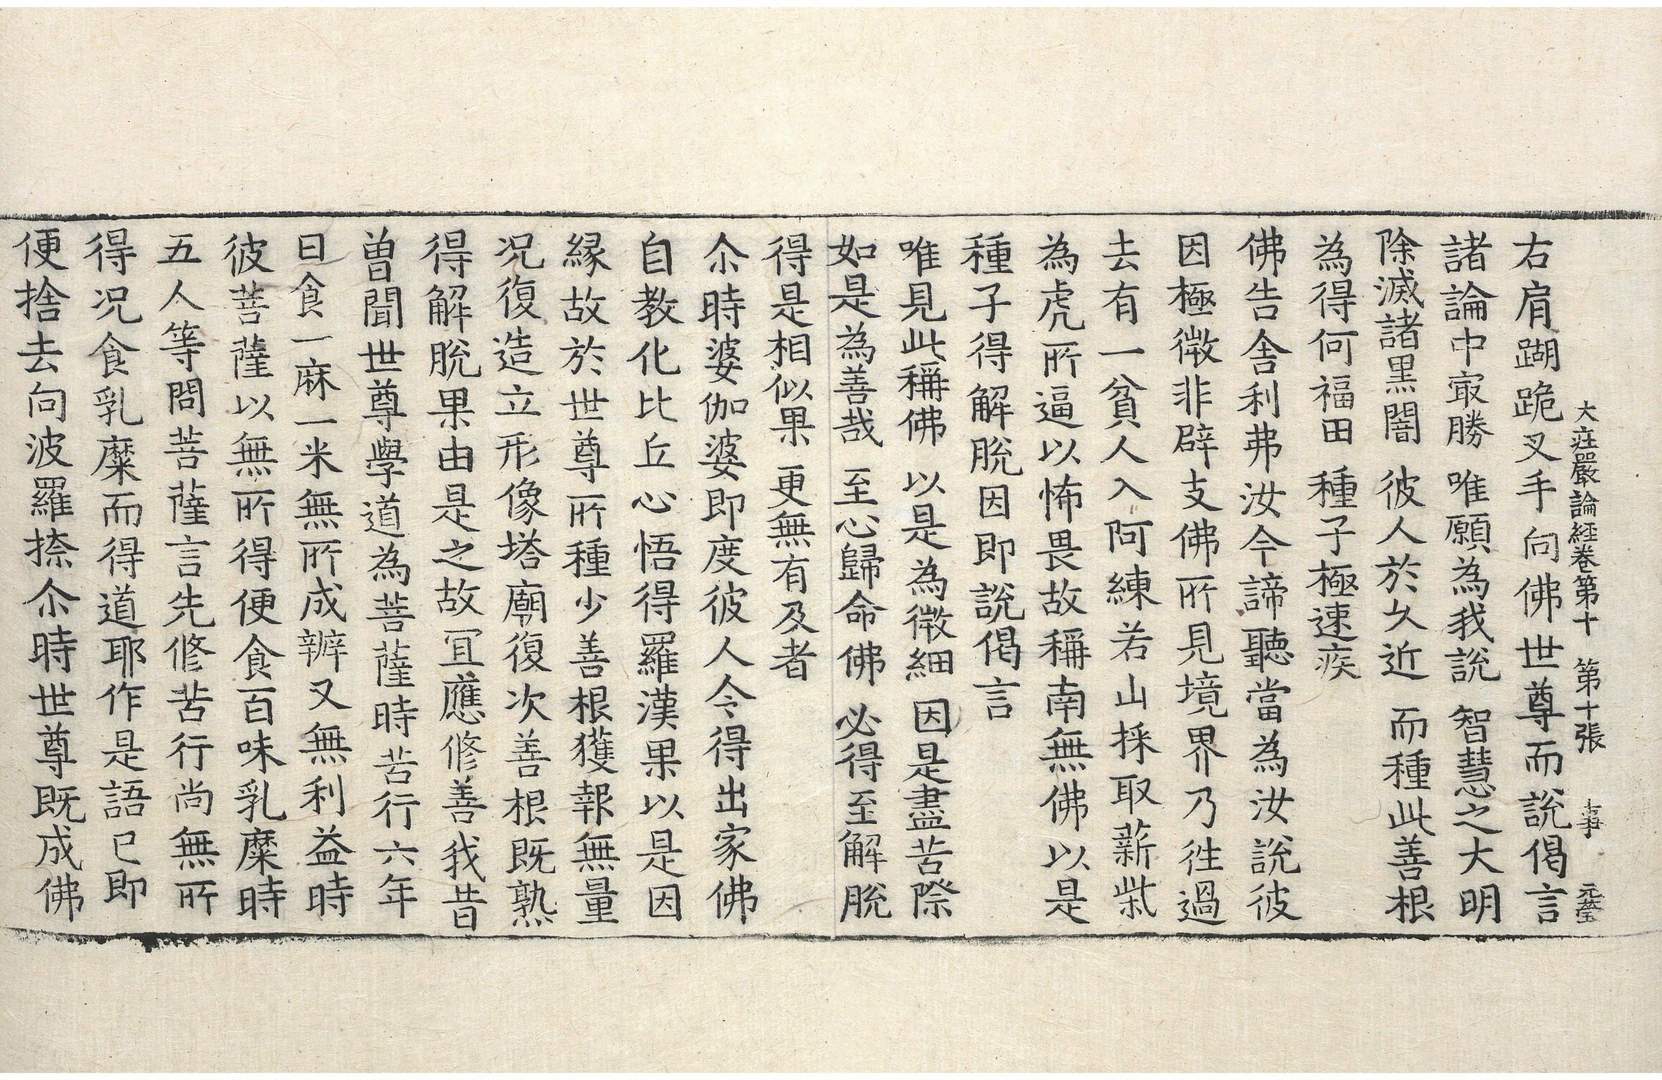 大莊嚴論經卷第十　第十張　事　元瑩
右肩䠒跪叉手向佛世尊而說偈言
諸論中㝡勝　唯願為我說　智慧之大明
除滅諸黑闇　彼人於久近　而種此善根
為得何福田　種子極速疾
佛告舍利弗汝今諦聽當為汝說彼
因極微非辟支佛所見境界乃往過
去有一貧人入阿練若山採取薪柴
為虎所逼以怖畏故稱南無佛以是
種子得解脫因即說偈言
唯見此稱佛　以是為微細　因是盡苦際
如是為善哉　至心歸命佛　必得至解脫
得是相似果　更無有及者
尒時婆伽婆即度彼人令得出家佛
自教化比丘心悟得羅漢果以是因
緣故於世尊所種少善根獲報無量
况復造立形像塔廟復次善根既熟
得解脫果由是之故冝應修善我昔
曾聞世尊學道為菩薩時苦行六年
日食一麻一米無所成辦又無利益時
彼菩薩以無所得便食百味乳糜時
五人等問菩薩言先修苦行尚無所
得况食乳糜而得道耶作是語已即
便捨去向波羅㮈尒時世尊既成佛